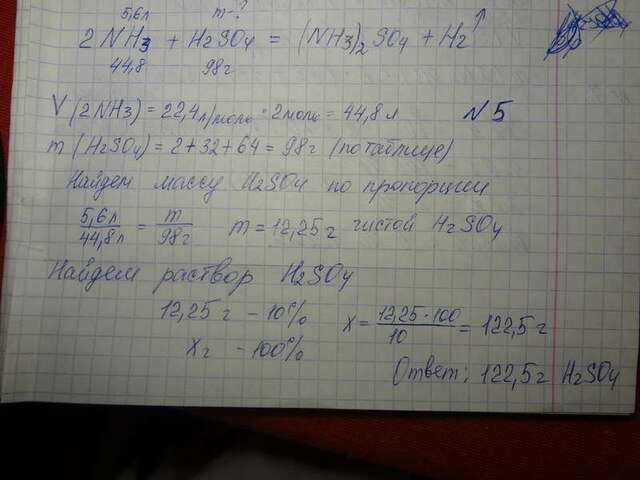 5,6л m-?
2 NH3 + H2SO4 = (NH3)2 SO4 + H2↑
44,8 98г
V(2NH3) = 22,4л/моль · 2моль = 44,8 л N5
m (H2SO4) = 2+32+64 = 98г (по таблице)
Найдем массу H2SO4 по пропорции
5,6л/44,8л = m/98г m = 12,25г чистой H2SO4
Найдем раствор H2SO4
12,25 г - 10% x = 12,25·100/10 = 122,5 г
Xг - 100%
Ответ: 122,5г H2SO4